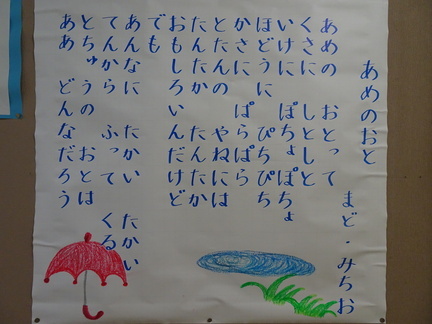 あめのおと
まど・みちお
あめの おとって
くさに しとしと
いけに ぽちょぽちょ
ほどうに ぴちぴち
かさに ぱらぱら
とたんの やねには
たんたか たんたか
おもしろいんだけど
でも
あんなに たかい たかい
てんから ふって くる
とちゅうの おとは
ああ どんなだろう